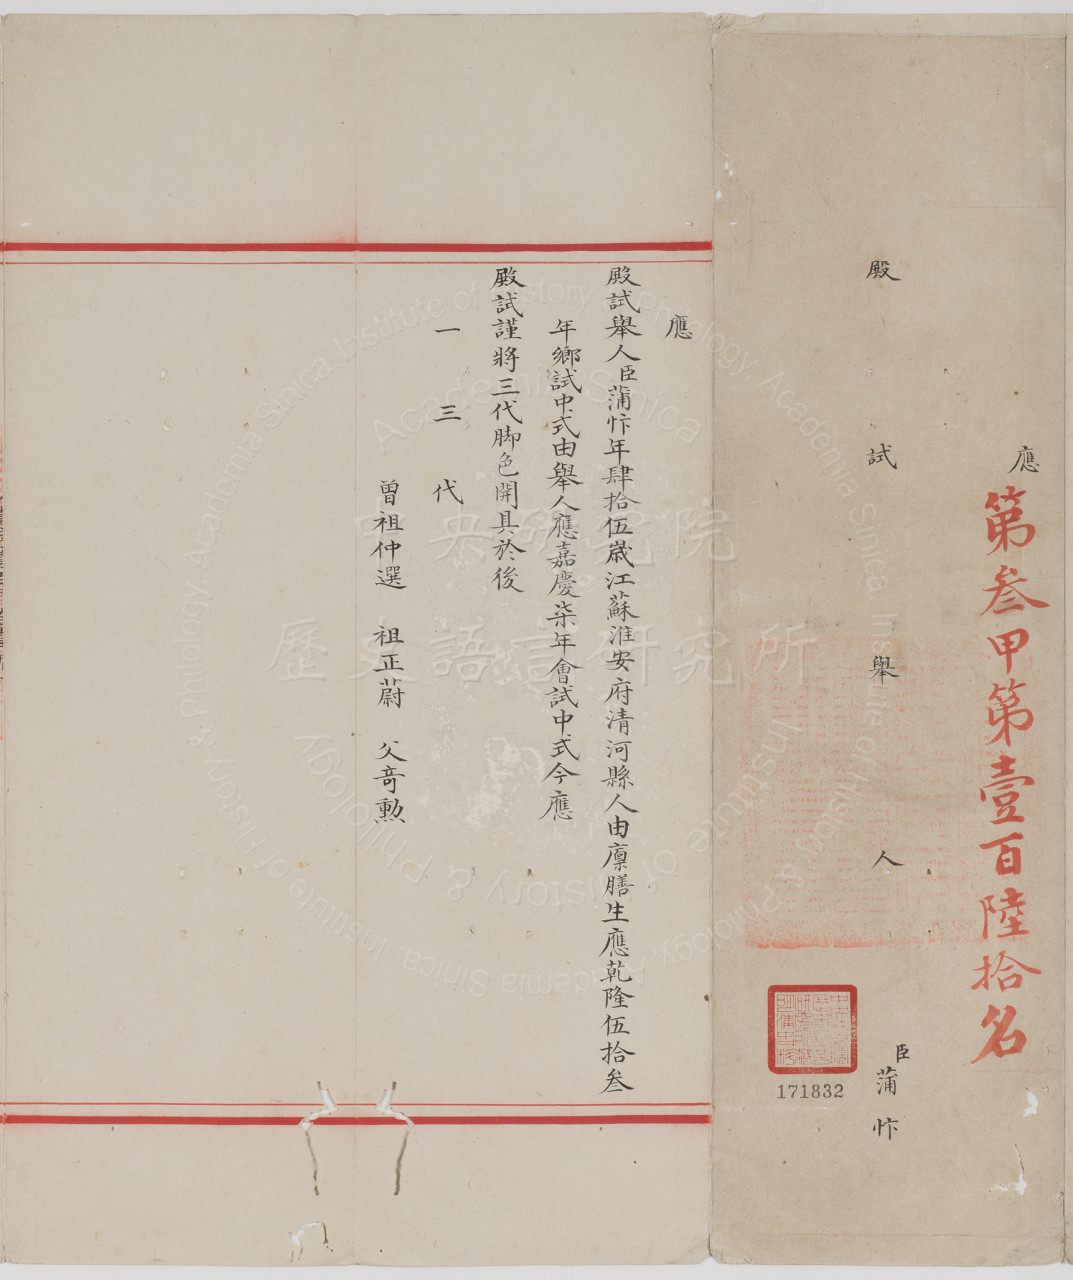 應
第叁甲第壹百陸拾名
殿試舉人
臣蒲忭
171832
應
殿試舉人臣蒲忭年肆拾伍歲江蘇淮安府清河縣人由廩膳生應乾隆伍拾叁
年鄉試中式由舉人應嘉慶柒年會試中式今應
殿試謹將三代脚色開具於後
一三代
曾祖仲選 祖正蔚 父竒勲
中央研究院
歷史語言研究所
Institute of History & Philology, Academia Sinica